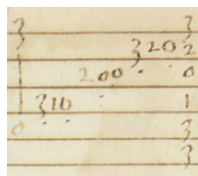 3 3
3 3 2 0 2
2 0 0 0
3 1 0 1
0 3
3